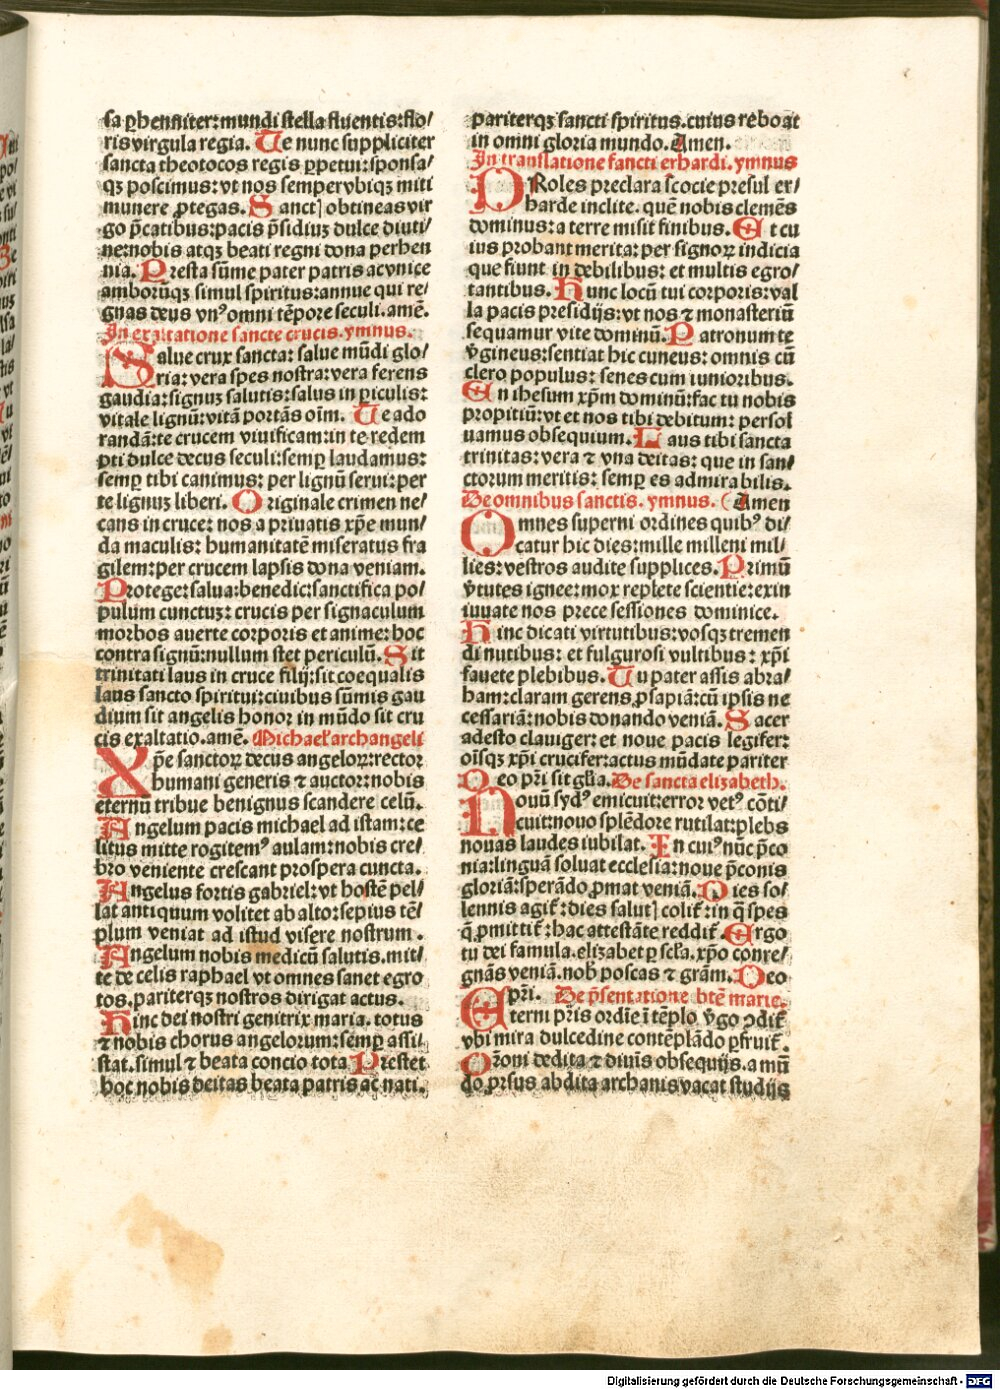 sa ꝑhenniter: mundi stella fluentis: flo/
ris virgula regia. Te nunc suppliciter
sancta theotocos regis ꝑpetui: sponsa/
qꝫ poscimus: vt nos semper vbiqꝫ miti
munere ꝓtegas. Sanctꝭ obtineas vir
go p̄catibus: pacis p̄sidiuꝫ dulce diuti/
ne: nobis atqꝫ beati regni dona perhen
nia. Presta sūme pater patris ac vnice
amborūqꝫ simul spiritus: annue qui re/
gnas deus vnꝰ omni tēpore seculi. amē.
In exaltatione sancte crucis. ymnus.
Salue crux sancta: salue mūdi glo/
ria: vera spes nostra: vera ferens
gaudia: signuꝫ salutis: salus in ꝑiculis:
vitale lignū: vitā portās oīm. Te ado
randā: te crucem viuificam: in te redem
pti dulce decus seculi: semꝑ laudamus:
semꝑ tibi canimus: per lignū serui: per
te lignuꝫ liberi. Originale crimen ne/
cans in cruce: nos a priuatis xp̄e mun/
da maculis: humanitatē miseratus fra
gilem: per crucem lapsis dona veniam.
Protege: salua: benedic: sanctifica po/
pulum cunctuꝫ: crucis per signaculum
morbos auerte corporis et anime: hoc
contra signū: nullum stet periculū. Sit
trinitati laus in cruce filij: sit coequalis
laus sancto spiritui: ciuibus sūmis gau
dium sit angelis honor in mūdo sit cru
cis exaltatio. amē. Michael' archangeli
Xp̄e sanctoꝝ decus angeloꝝ: rector
humani generis ⁊ auctor: nobis
eternū tribue benignus scandere celū.
Angelum pacis michael ad istam: ce
litus mitte rogitemꝰ aulam: nobis cre/
bro veniente crescant prospera cuncta.
Angelus fortis gabriel: vt hostē pel/
lat antiquum volitet ab alto: sepius tē/
plum veniat ad istud visere nostrum.
Angelum nobis medicū salutis. mit/
te de celis raphael vt omnes sanet egro
tos. pariterqꝫ nostros dirigat actus.
Hinc dei nostri genitrix maria. totus
⁊ nobis chorus angelorum: semꝑ assi/
stat. simul ⁊ beata concio tota Prestet
hoc nobis deitas beata patris ac nati.
pariterqꝫ sancti spiritus. cuius reboat
in omni gloria mundo. Amen.
In translatione sancti erhardi. ymnus
PRoles preclara scocie presul er/
harde inclite. quē nobis clemēs
dominus: a terre misit finibus. Et cu
ius probant merita: per signoꝝ indicia
que fiunt in debilibus: et multis egro/
tantibus. Hunc locū tui corporis: val
la pacis presidijs: vt nos ⁊ monasteriū
sequamur vite dominū. Patronum te
v̄gineus: sentiat hic cuneus: omnis cū
clero populus: senes cum iunioribus.
En ihesum xp̄m dominū: fac tu nobis
propitiū: vt et nos tibi debitum: persol
uamus obsequium. Laus tibi sancta
trinitas: vera ⁊ vna deitas: que in san/
ctorum meritis: semꝑ es admirabilis.
De omnibus sanctis. ymnus. (Amen
Omnes superni ordines quibꝰ di/
catur hic dies: mille milleni mil/
lies: vestros audite supplices. Primū
v̄tutes ignee: mox replete scientie: exin
iuuate nos prece sessiones dominice.
Hinc dicati virtutibus: vosqꝫ tremen
di nutibus: et fulgurosi vultibus: xp̄i
fauete plebibus. Tu pater assis abra/
ham: claram gerens ꝓsapiā: cū ipsis ne
cessariā: nobis donando veniā. Sacer
adesto clauiger: et noue pacis legifer:
oīsqꝫ xp̄i crucifer: actus mūdate pariter
Deo pr̄i sit gl̄ia. De sancta elizabeth.
Nouū sydꝰ emicuit: error vetꝰ cōti/
cuit: nouo splēdore rutilat: plebs
nouas laudes iubilat. In cuiꝰ nūc p̄co
nia: linguā soluat ecclesia: noue p̄conis
gloriā: sperādo ꝓmat veniā. Dies so/
lennis agit᷑: dies salutꝭ colit᷑: in q̄ spes
q̄ ꝓmittit᷑: hac attestāte reddit᷑. Ergo
tu dei famula. elizabet ꝑ scl̄a. xp̄o conre/
gnās veniā. nob̄ poscas ⁊ grām. Deo
pr̄i. De p̄sentatione btē marie.
Eterni pr̄is ordīe ī tēplo v̄go ꝯdit᷑
vbi mira dulcedine contēplādo ꝑfruit᷑.
Orōni dedita ⁊ diuīs obsequijs. a mū
do ꝓrsus abdita archanis vacat studijs
Digitalisierung gefördert durch die Deutsche Forschungsgemeinschaft - DFG